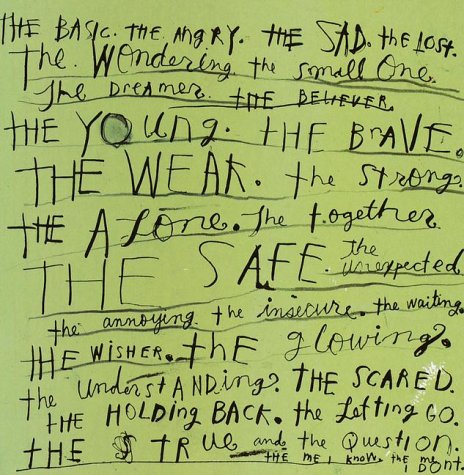 tHE BASIC. tHE AngRY. tHE SAD. the LOSt.
The. WOndering the small One.
The DreAmer. tHE BELIEVER.
tHE YOung. tHE BrAVE.
THE WEAK. the strong?
tHE Alone. The together
THE SAFE. The
Unexpected
the annoying the insecure. the waiting.
tHE WISHER. tHE glowing?
the UnderstANDing? THE SCARED.
tHE HOLDing BACK. the LEtting GO.
tHE TRUE and the QUestion.
tHE mE I know. the me
DOnt.